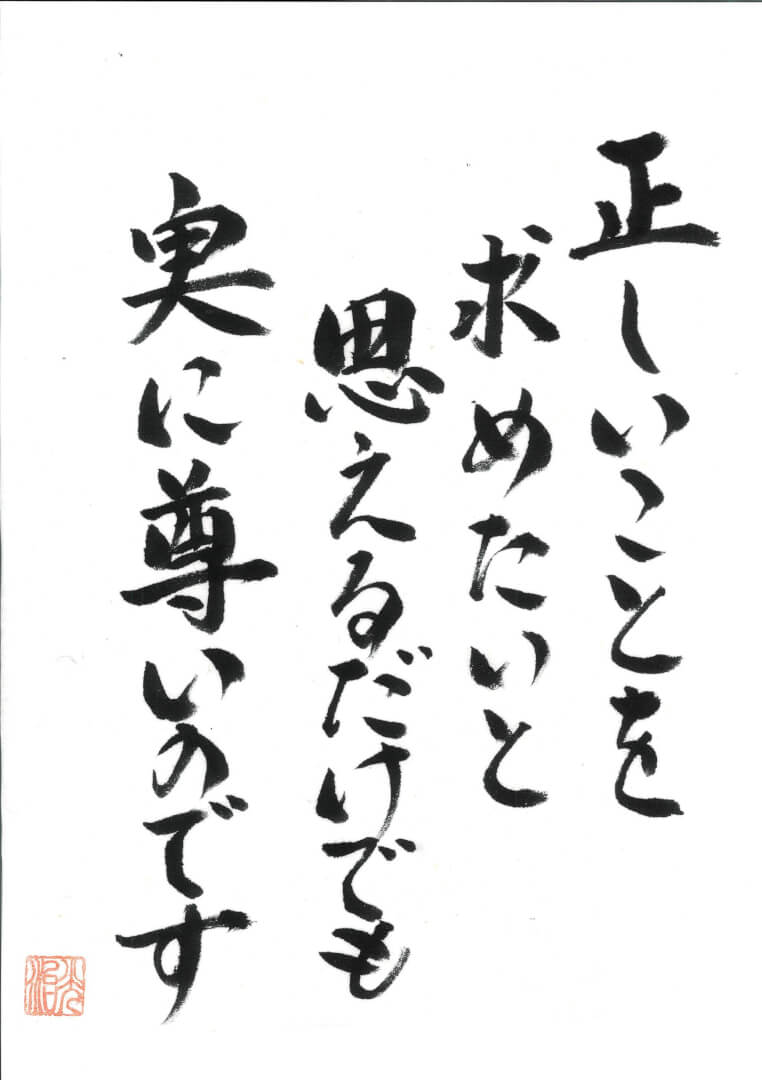 正しいことを
求めたいと
思えるだけでも
実に尊いのです